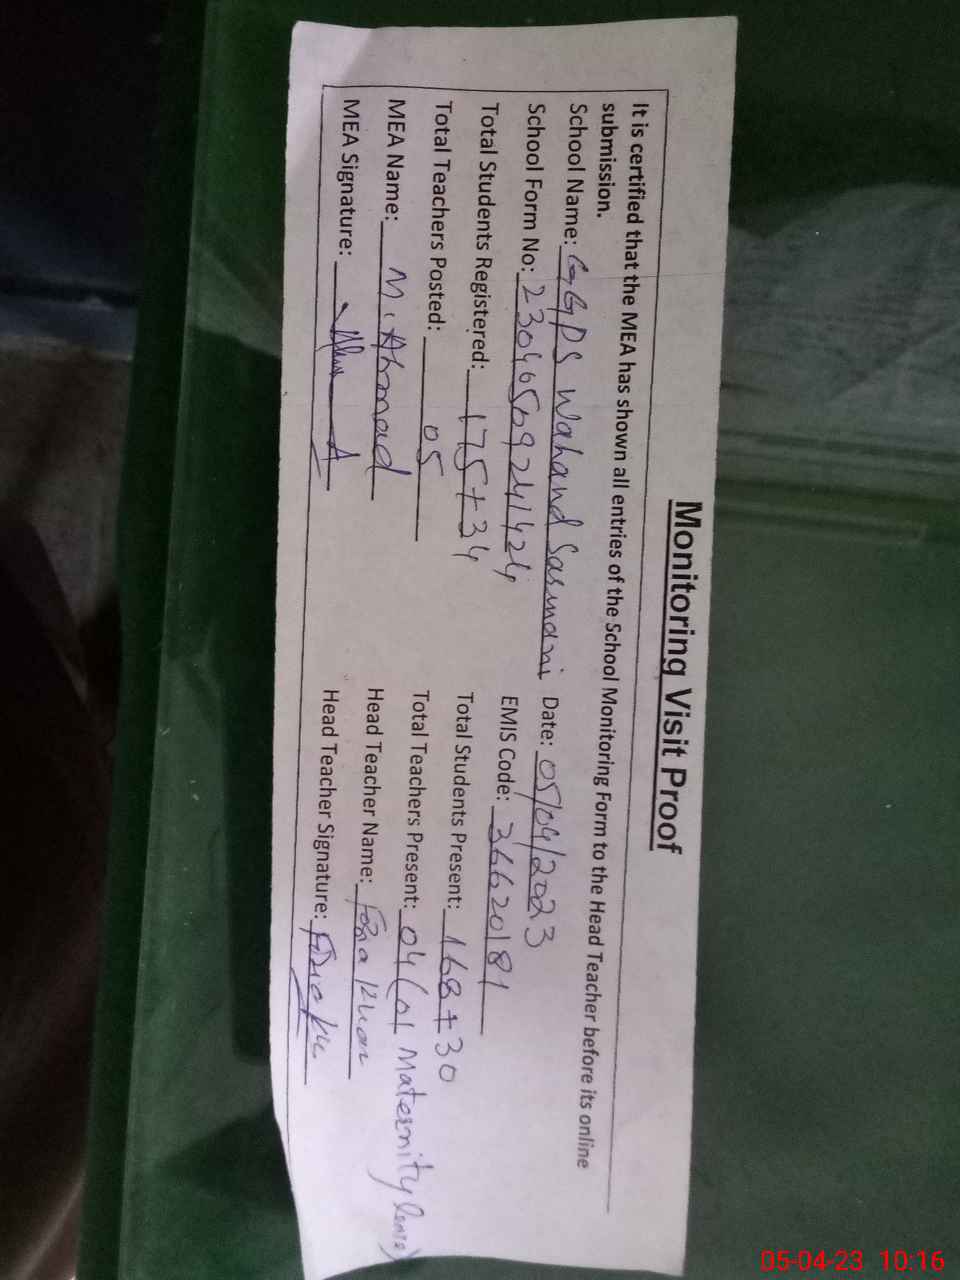 Monitoring Visit Proof
It is certified that the MEA has shown all entries of the School Monitoring Form to the Head Teacher before its online
submission.
School Name: GGPS Wahand Sasmdani Date: 05/04/2023
School Form No: 23040569241424 EMIS Code: 36620181
Total Students Registered: 175+34 Total Students Present: 168+30
Total Teachers Posted: 05 Total Teachers Present: 04 (01 Maternity leave)
MEA Name: M. Ahmad Head Teacher Name: Fozia Khan
MEA Signature: Head Teacher Signature:
05-04-23 10:16